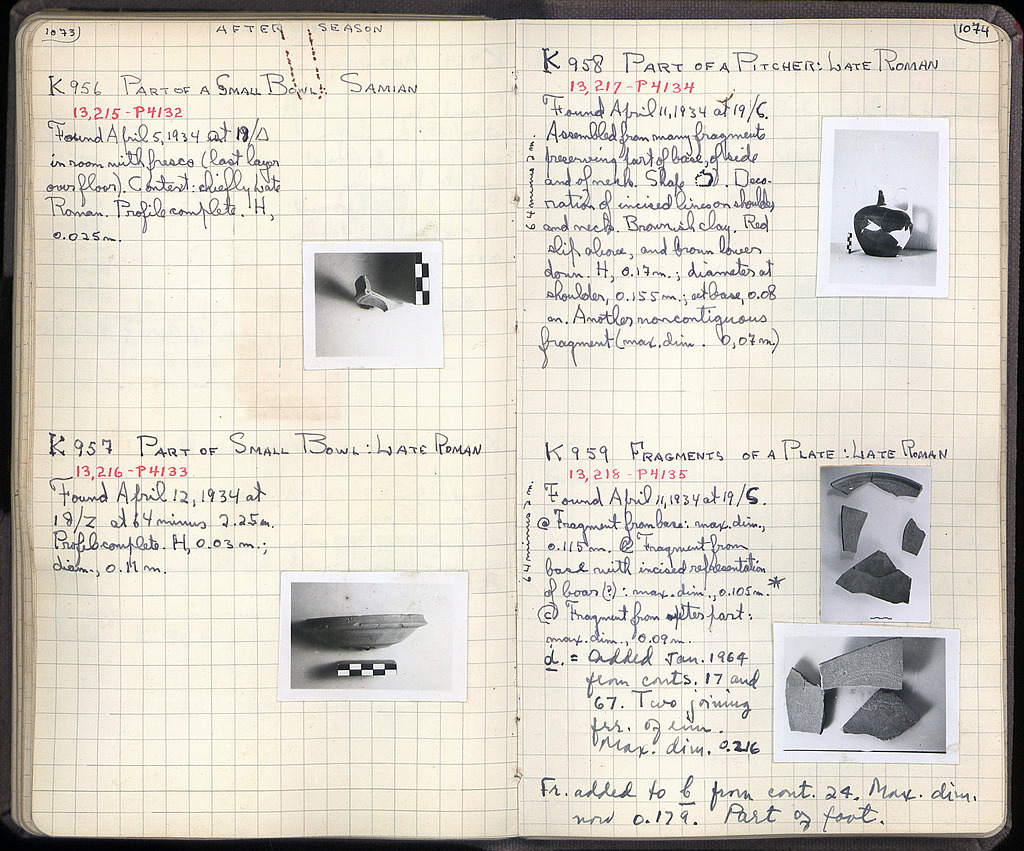 1073
AFTER SEASON
K 956 PART OF A SMALL BOWL: SAMIAN
13,215 - P4132
Found April 5, 1934 at 18/Δ
in room with fresco (last layer
over floor). Context: chiefly Late
Roman. Profile complete. H,
0.025 m.
K 957 PART OF SMALL BOWL: LATE ROMAN
13,216 - P4133
Found April 12, 1934 at
18/Z at 64 minus 2.25 m.
Profile complete. H, 0.03 m.;
diam., 0.11 m.
1074
K 958 PART OF A PITCHER: LATE ROMAN
13,217 - P4134
Found April 11, 1934 at 19/Ϛ.
64 minus 2 m.
Assembled from many fragments
preserving part of base, of side
and of neck. Shape . Deco-
ration of incised lines on shoulder
and neck. Brownish clay. Red
slip above, and brown lower
down. H, 0.17 m.; diameter at
shoulder, 0.155 m.; at base, 0.08
m. Another noncontiguous
fragment (max. dim. 0,07 m.)
K 959 FRAGMENTS OF A PLATE: LATE ROMAN
13,218 - P4135
Found April 11, 1934 at 19/Ϛ.
64 minus 2 m.
ⓐ Fragment from base: max. dim.,
0.115 m. ⓑ Fragment from
base with incised representation
of boar (?): max. dim., 0.105 m.*
ⓒ Fragment from part:
max. dim., 0.09 m.
d. = Added Jan. 1964
from conts. 17 and
67. Two joining
frr. of rim.
Max. dim. 0.216
Fr. added to b from cont. 24. Max. dim.
now 0.179. Part of foot.